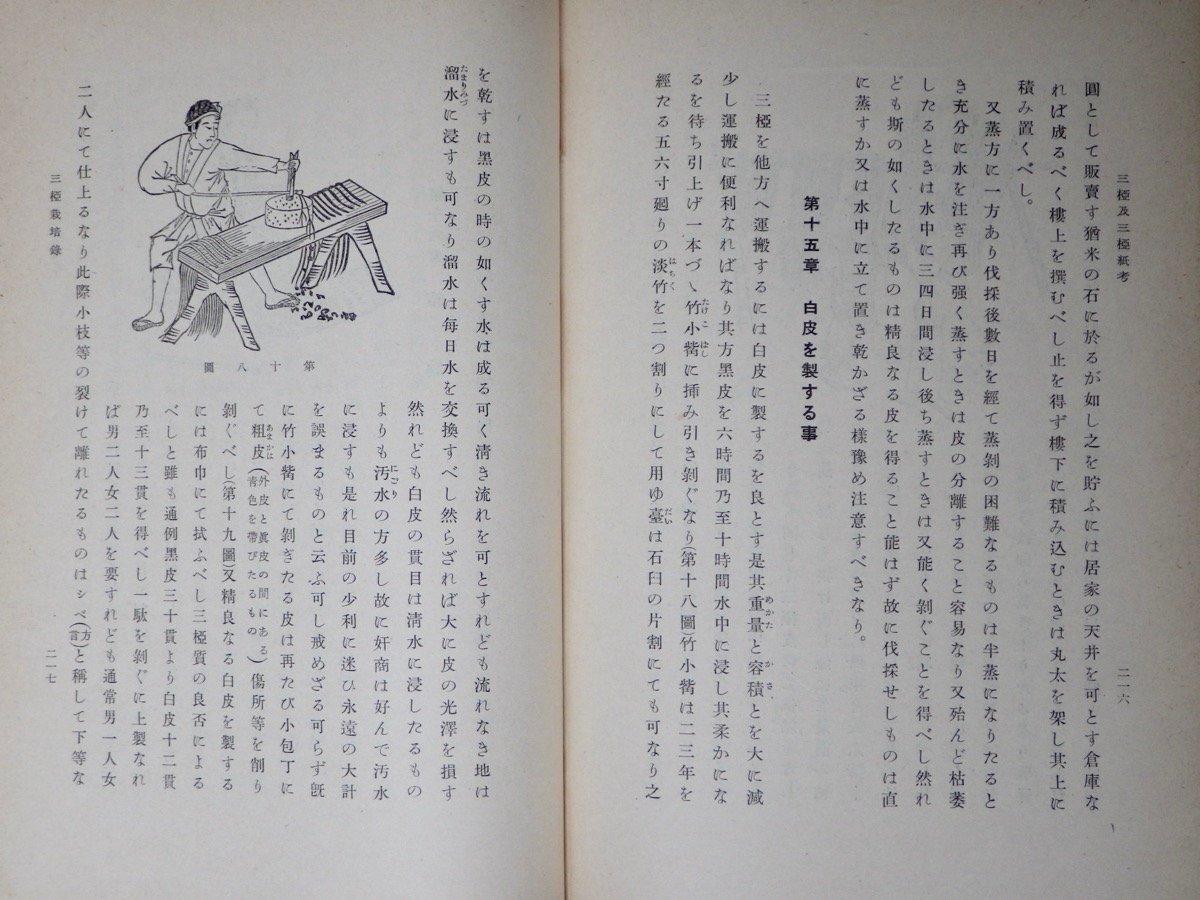 三椏及三椏紙考
二一六
圓として販賣す猶米の石に於るが如し之を貯ふには居家の天井を可とす倉庫な
れば成るべく樓上を撰むべし止を得ず樓下に積み込むときは丸太を架し其上に
積み置くべし。
又蒸方に一方あり伐採後數日を經て蒸剝の困難なるものは半蒸になりたると
き充分に水を注ぎ再び强く蒸すときは皮の分離すること容易なり又殆んど枯萎
したるときは水中に三四日間浸し後ち蒸すときは又能く剝ぐことを得べし然れ
ども斯の如くしたるものは精良なる皮を得ること能はず故に伐採せしものは直
に蒸すか又は水中に立て置き乾かざる樣豫め注意すべきなり。
第十五章 白皮を製する事
三椏を他方へ運搬するには白皮に製するを良とす是其重量と容積とを大に減
少し運搬に便利なればなり其方黑皮を六時間乃至十時間水中に浸し其柔かにな
るを待ち引上げ一本づゝ竹小觜に挿み引き剝ぐなり(第十八圖)竹小觜は二三年を
經たる五六寸廻りの淡竹を二つ割りにして用ゆ臺は石臼の片割にても可なり之
を乾すは黑皮の時の如くす水は成る可く淸き流れを可とすれども流れなき地は
溜水に浸すも可なり溜水は每日水を交換すべし然らざれば大に皮の光澤を損す
然れども白皮の貫目は淸水に浸したるもの
よりも汚水の方多し故に奸商は好んで汚水
に浸すも是れ目前の少利に迷ひ永遠の大計
を誤まるものと云ふ可し戒めざる可らず旣
に竹小觜にて剝ぎたる皮は再たび小包丁に
て粗皮(外皮と眞皮の間にある靑色を帶びたるもの)傷所等を削り
剝ぐべし(第十九圖)又精良なる白皮を製する
には布巾にて拭ふべし三椏質の良否による
べしと雖も通例黑皮三十貫より白皮十二貫
乃至十三貫を得べし一駄を剝ぐに上製なれ
ば男二人女二人を要すれども通常男一人女
二人にて仕上るなり此際小枝等の裂けて離れたるものはシベ(方言)と稱して下等な
第十八圖
三椏栽培錄
二一七